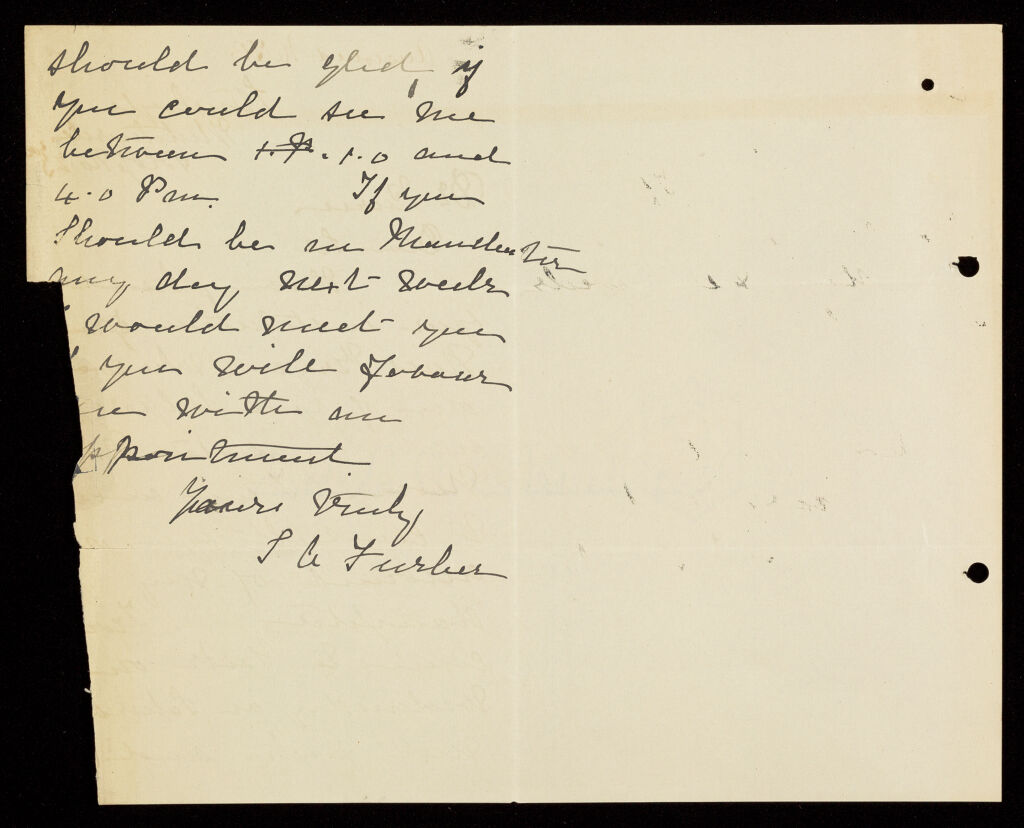 should be glad, if
you could see me
between 1.0 and
4.0 Pm. If you
Should be in Manchester
any day next week
would meet you
you will favour
me with an
ppointment
Yours truly
S A Furber